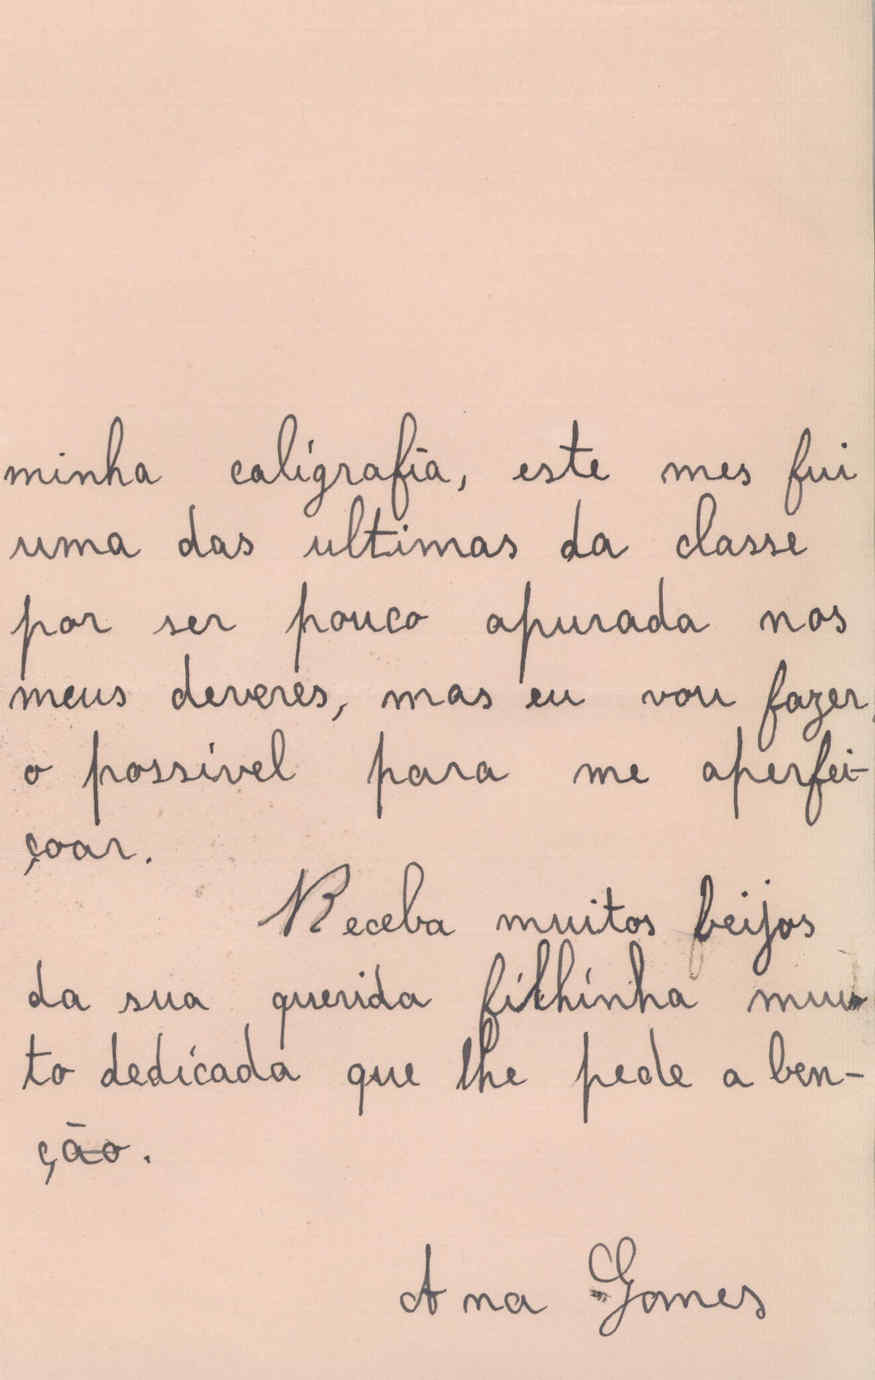 minha caligrafia, este mes fui
uma das ultimas da classe
por ser pouco apurada nos
meus deveres, mas eu vou fazer,
o possivel para me aperfei-
çoar.
Receba muitos beijos
da sua querida filhinha mui
to dedicada que lhe pede a ben-
ção.
Ana Gomes